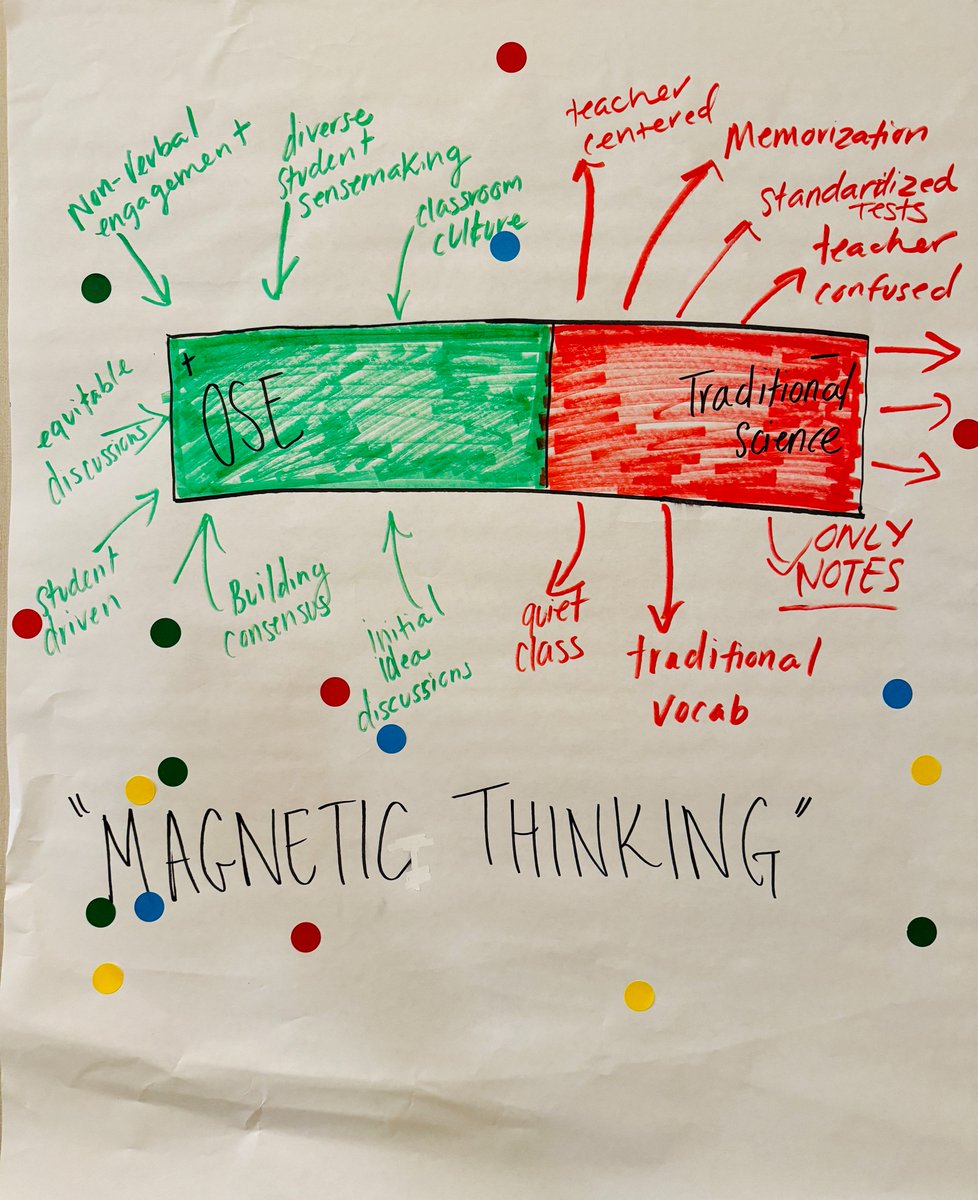 Non-verbal
engagement
diverse
student
sensemaking
classroom
culture
teacher
centered
Memorization
Standardized
Tests
teacher
confused
equitable
discussions
+
OSE
−
Traditional
Science
student
driven
Building
consensus
initial
idea
discussions
quiet
class
traditional
vocab
ONLY
NOTES
"MAGNETIC THINKING"